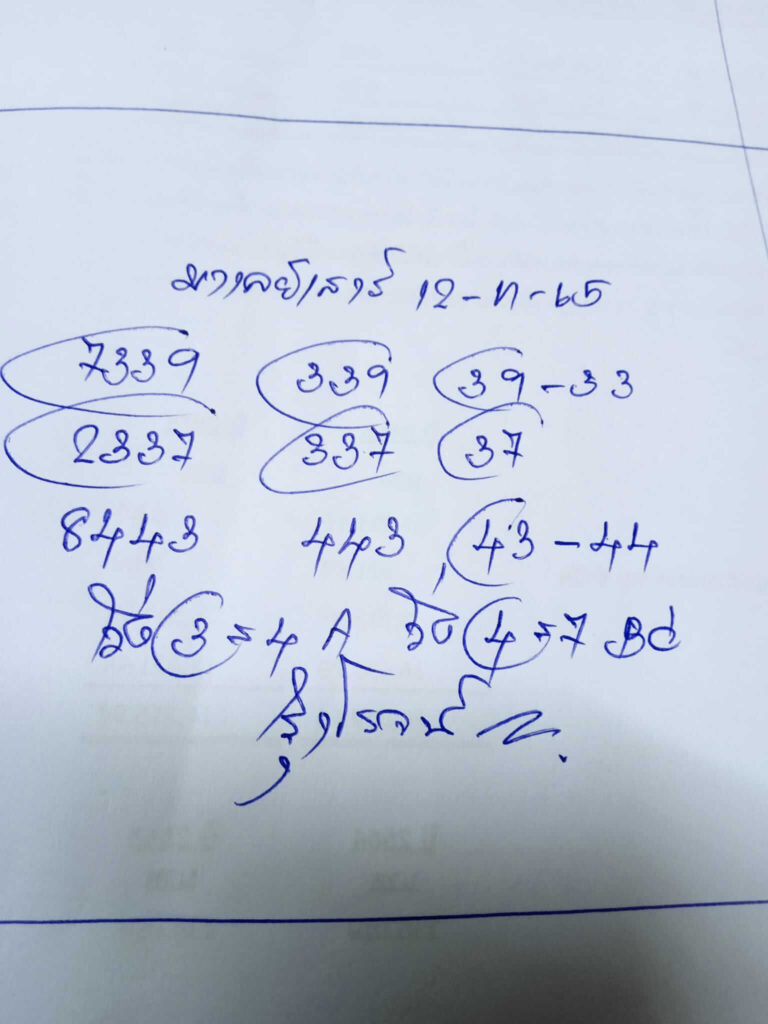 มาเลย์เสาร์ 12-ก-65
7339 339 39-33
2337 337 37
8443 443 43-44
วิ่ง 3 = 4 A วิ่ง 4 = 7 Bd
รุ่งโรจน์